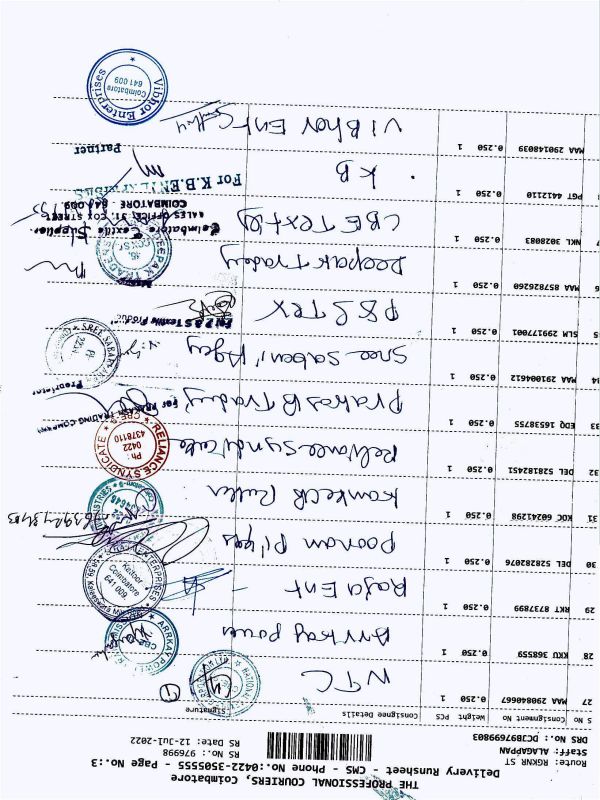 THE PROFESSIONAL COURIERS, Coimbatore
Delivery Runsheet - CMS - Phone No.:0422-3505555 - Page No.:3
Route: RGKNR ST
Staff: ALAGAPPAN
DRS No.: DCJB97699803
RS No.: 976998
RS Date: 12-Jul-2022
S No Consignment No Weight PCS Consignee Details Signature
27 MAA 290840667 0.250 1 NTC
28 KKU 368559 0.250 1 Arrkay power
29 RKT 8737899 0.250 1 Raja Ent
30 DEL 528282076 0.250 1 Poonam Pipes
31 KOC 60241298 0.250 1
32 DEL 528182451 0.250 1 Reliance Syndicate
33 EDO 16538755 0.250 1 Prakas B Traders
34 MAA 291004612 0.250 1 Sree Sabari Agey
35 SLM 299177001 0.250 1 P & S Tex
6 MAA 857826260 0.250 1 Deepak Trades
7 NKL 3028083 0.250 1 CBE Text
PGT 4412110 0.250 1 KB
MAA 290148039 0.250 1 Vibhor Ent
ARRKAY POWER
RAJA ENTERPRISES
Rattoor
Coimbatore
641 009.
7639243403
RELIANCE SYNDICATE
CBE
Ph:
0422
4378110
For
TRADING COMPANY
Proprietor
SREE SABARI
For P & S Textile Product
DEEPAK TRADERS
Coimbatore Textile Supplier.
SALES OFFICE: 31, COX STREET,
COIMBATORE - 641 009.
For K.B.ENTERPRISES
Partner
Vibhor Enterprises
Coimbatore
641 009